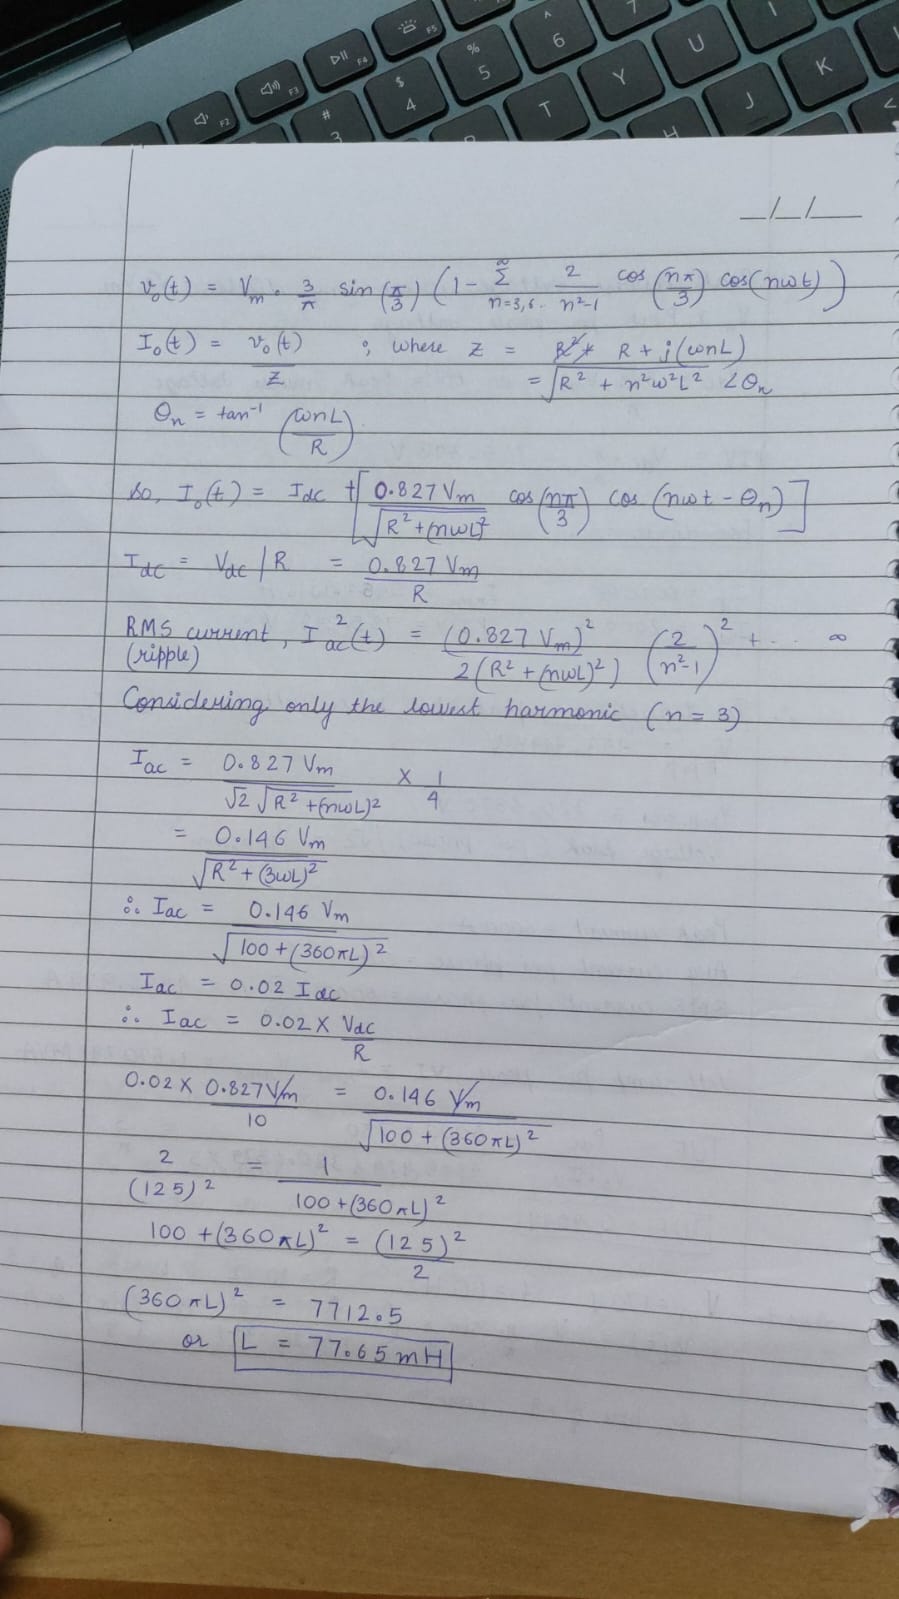 F2
F3
F4
F5
#
3
$
4
%
5
^
6
7
T
Y
U
I
H
J
K
<
_/_/__
v₀(t) = Vm · 3/π sin(π/3) (1 - ∞Σn=3,6.. 2/n²-1 cos(nπ/3) cos(nωt))
I₀(t) = v₀(t)/Z ; where Z = R + j(ωnL)
= √R² + n²ω²L² ∠θn
θn = tan⁻¹ (ωnL/R)
so, I₀(t) = Idc + [0.827 Vm/√R²+(nωL)² cos(nπ/3) cos(nωt - θn)]
Idc = Vdc / R = 0.827 Vm/R
RMS current, I²ac(t) = (0.827 Vm)²/2(R²+(nωL)²) (2/n²-1)² + ... ∞
(ripple)
Considering only the lowest harmonic (n = 3)
Iac = 0.827 Vm/√2 √R²+(nωL)² × 1/4
= 0.146 Vm/√R²+(3ωL)²
∴ Iac = 0.146 Vm/√100+(360πL)²
Iac = 0.02 Idc
∴ Iac = 0.02 × Vdc/R
0.02 × 0.827Vm/10 = 0.146 Vm/√100 + (360πL)²
2/(125)² = 1/100+(360πL)²
100 + (360πL)² = (125)²/2
(360πL)² = 7712.5
or L = 77.65 mH